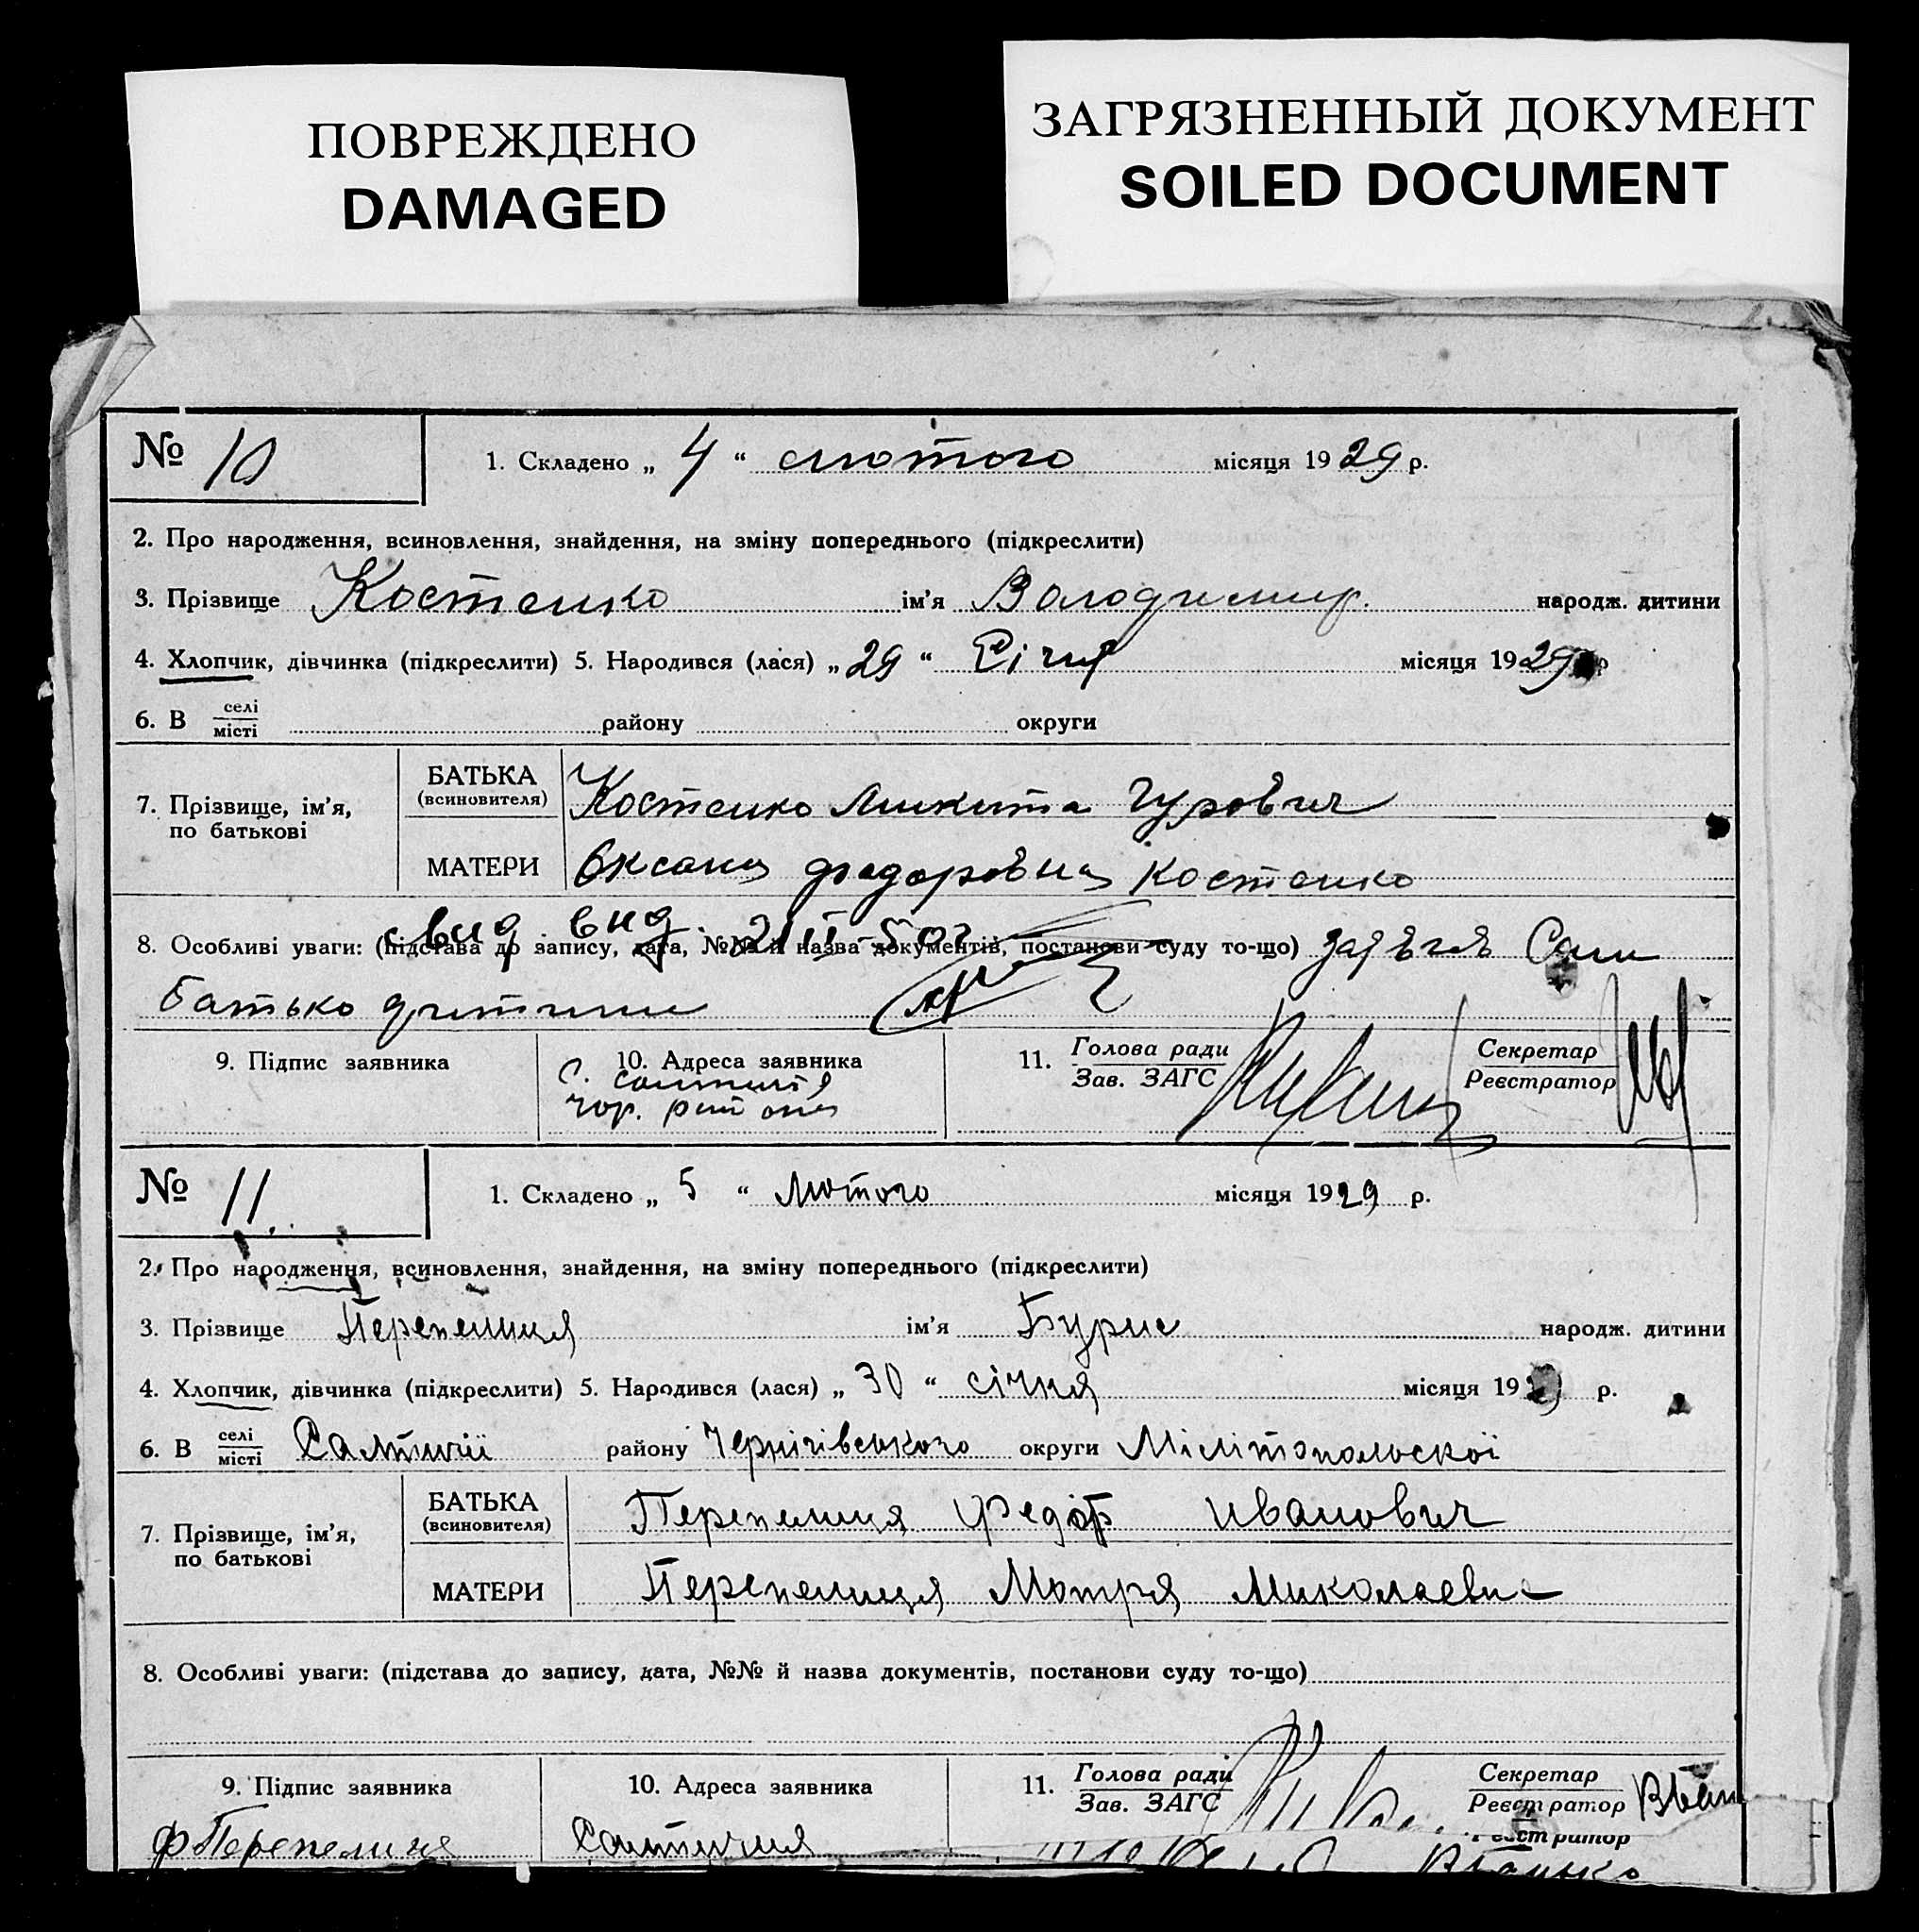 ПОВРЕЖДЕНО
DAMAGED
ЗАГРЯЗНЕННЫЙ ДОКУМЕНТ
SOILED DOCUMENT
№ 10
1. Складено „ 4 “ лютого місяця 1929 р.
2. Про народження, всиновлення, знайдення, на зміну попереднього (підкреслити)
3. Прізвище Костенко ім'я Володимир. народж. дитини
4. Хлопчик, дівчинка (підкреслити) 5. Народився (лася) „ 29 “ Січня місяця 1929 р
6. В селі
місті району округи
7. Прізвище, ім'я,
по батькові
БАТЬКА
(всиновителя) Костенко Микита Гурович
МАТЕРИ Оксана Федоровна Костенко
8. Особливі уваги: (підстава до запису, дата, №№ й назва документів, постанови суду то-що) Сам
батько дитини
9. Підпис заявника
10. Адреса заявника
с.
чор. району
11. Голова ради
Зав. ЗАГС
Секретар
Реєстратор
№ 11.
1. Складено „ 5 “ Лютого місяця 1929 р.
2. Про народження, всиновлення, знайдення, на зміну попереднього (підкреслити)
3. Прізвище Перепелиця ім'я Бурис народж. дитини
4. Хлопчик, дівчинка (підкреслити) 5. Народився (лася) „ 30 “ січня місяця 1929 р.
6. В селі
місті Салтичії району Чернігівського округи Мілітопольскої
7. Прізвище, ім'я,
по батькові
БАТЬКА
(всиновителя) Перепелиця Федот Иванович
МАТЕРИ Перепелиця Мотря Миколаевн
8. Особливі уваги: (підстава до запису, дата, №№ й назва документів, постанови суду то-що)
9. Підпис заявника
ФПерепелиця
10. Адреса заявника
Салтичия
11. Голова ради
Зав. ЗАГС
Секретар
Реєстратор